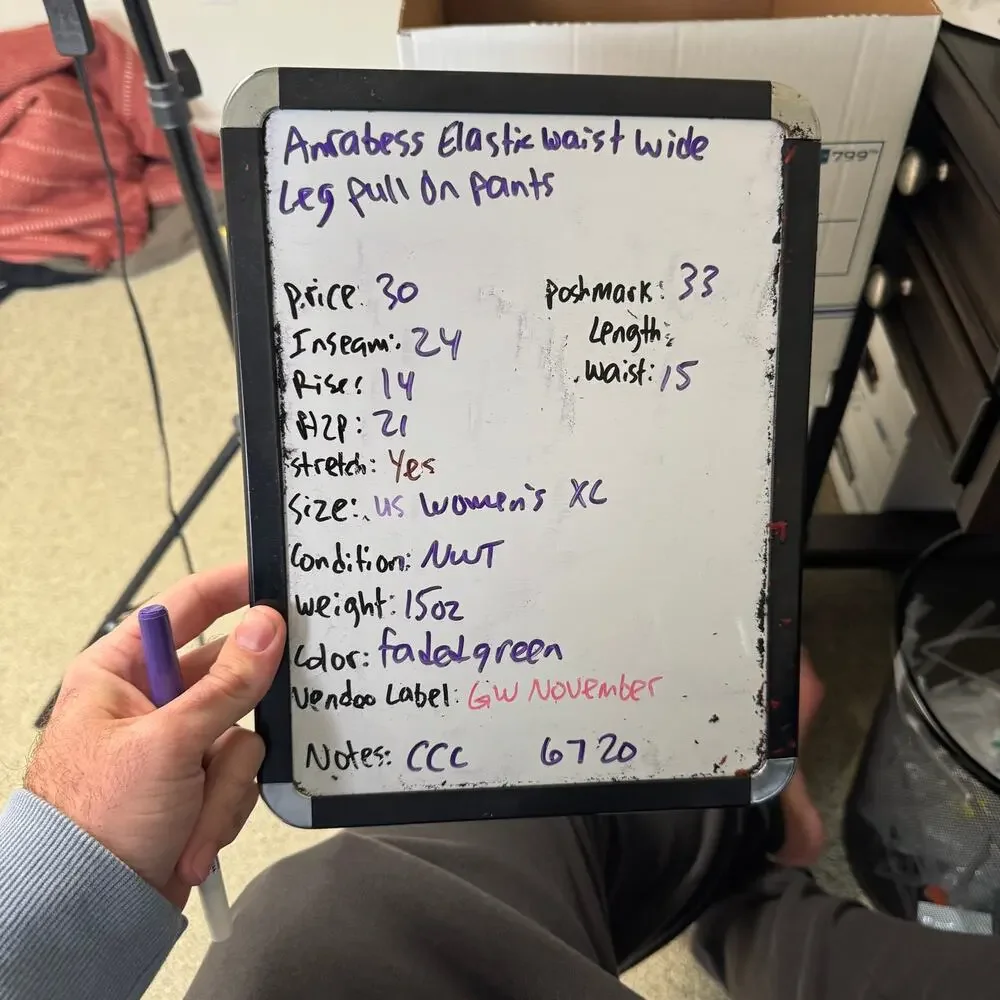 Anrabess Elastic waist wide
Leg pull On pants
price: 30
Poshmark: 33
Inseam: 24
Length:
Rise: 14
waist: 15
H2P: 21
stretch: Yes
Size: US Women's XL
Condition: NWT
weight: 15oz
Color: faded green
Vendoo Label: GW November
Notes: CCC 6720
799